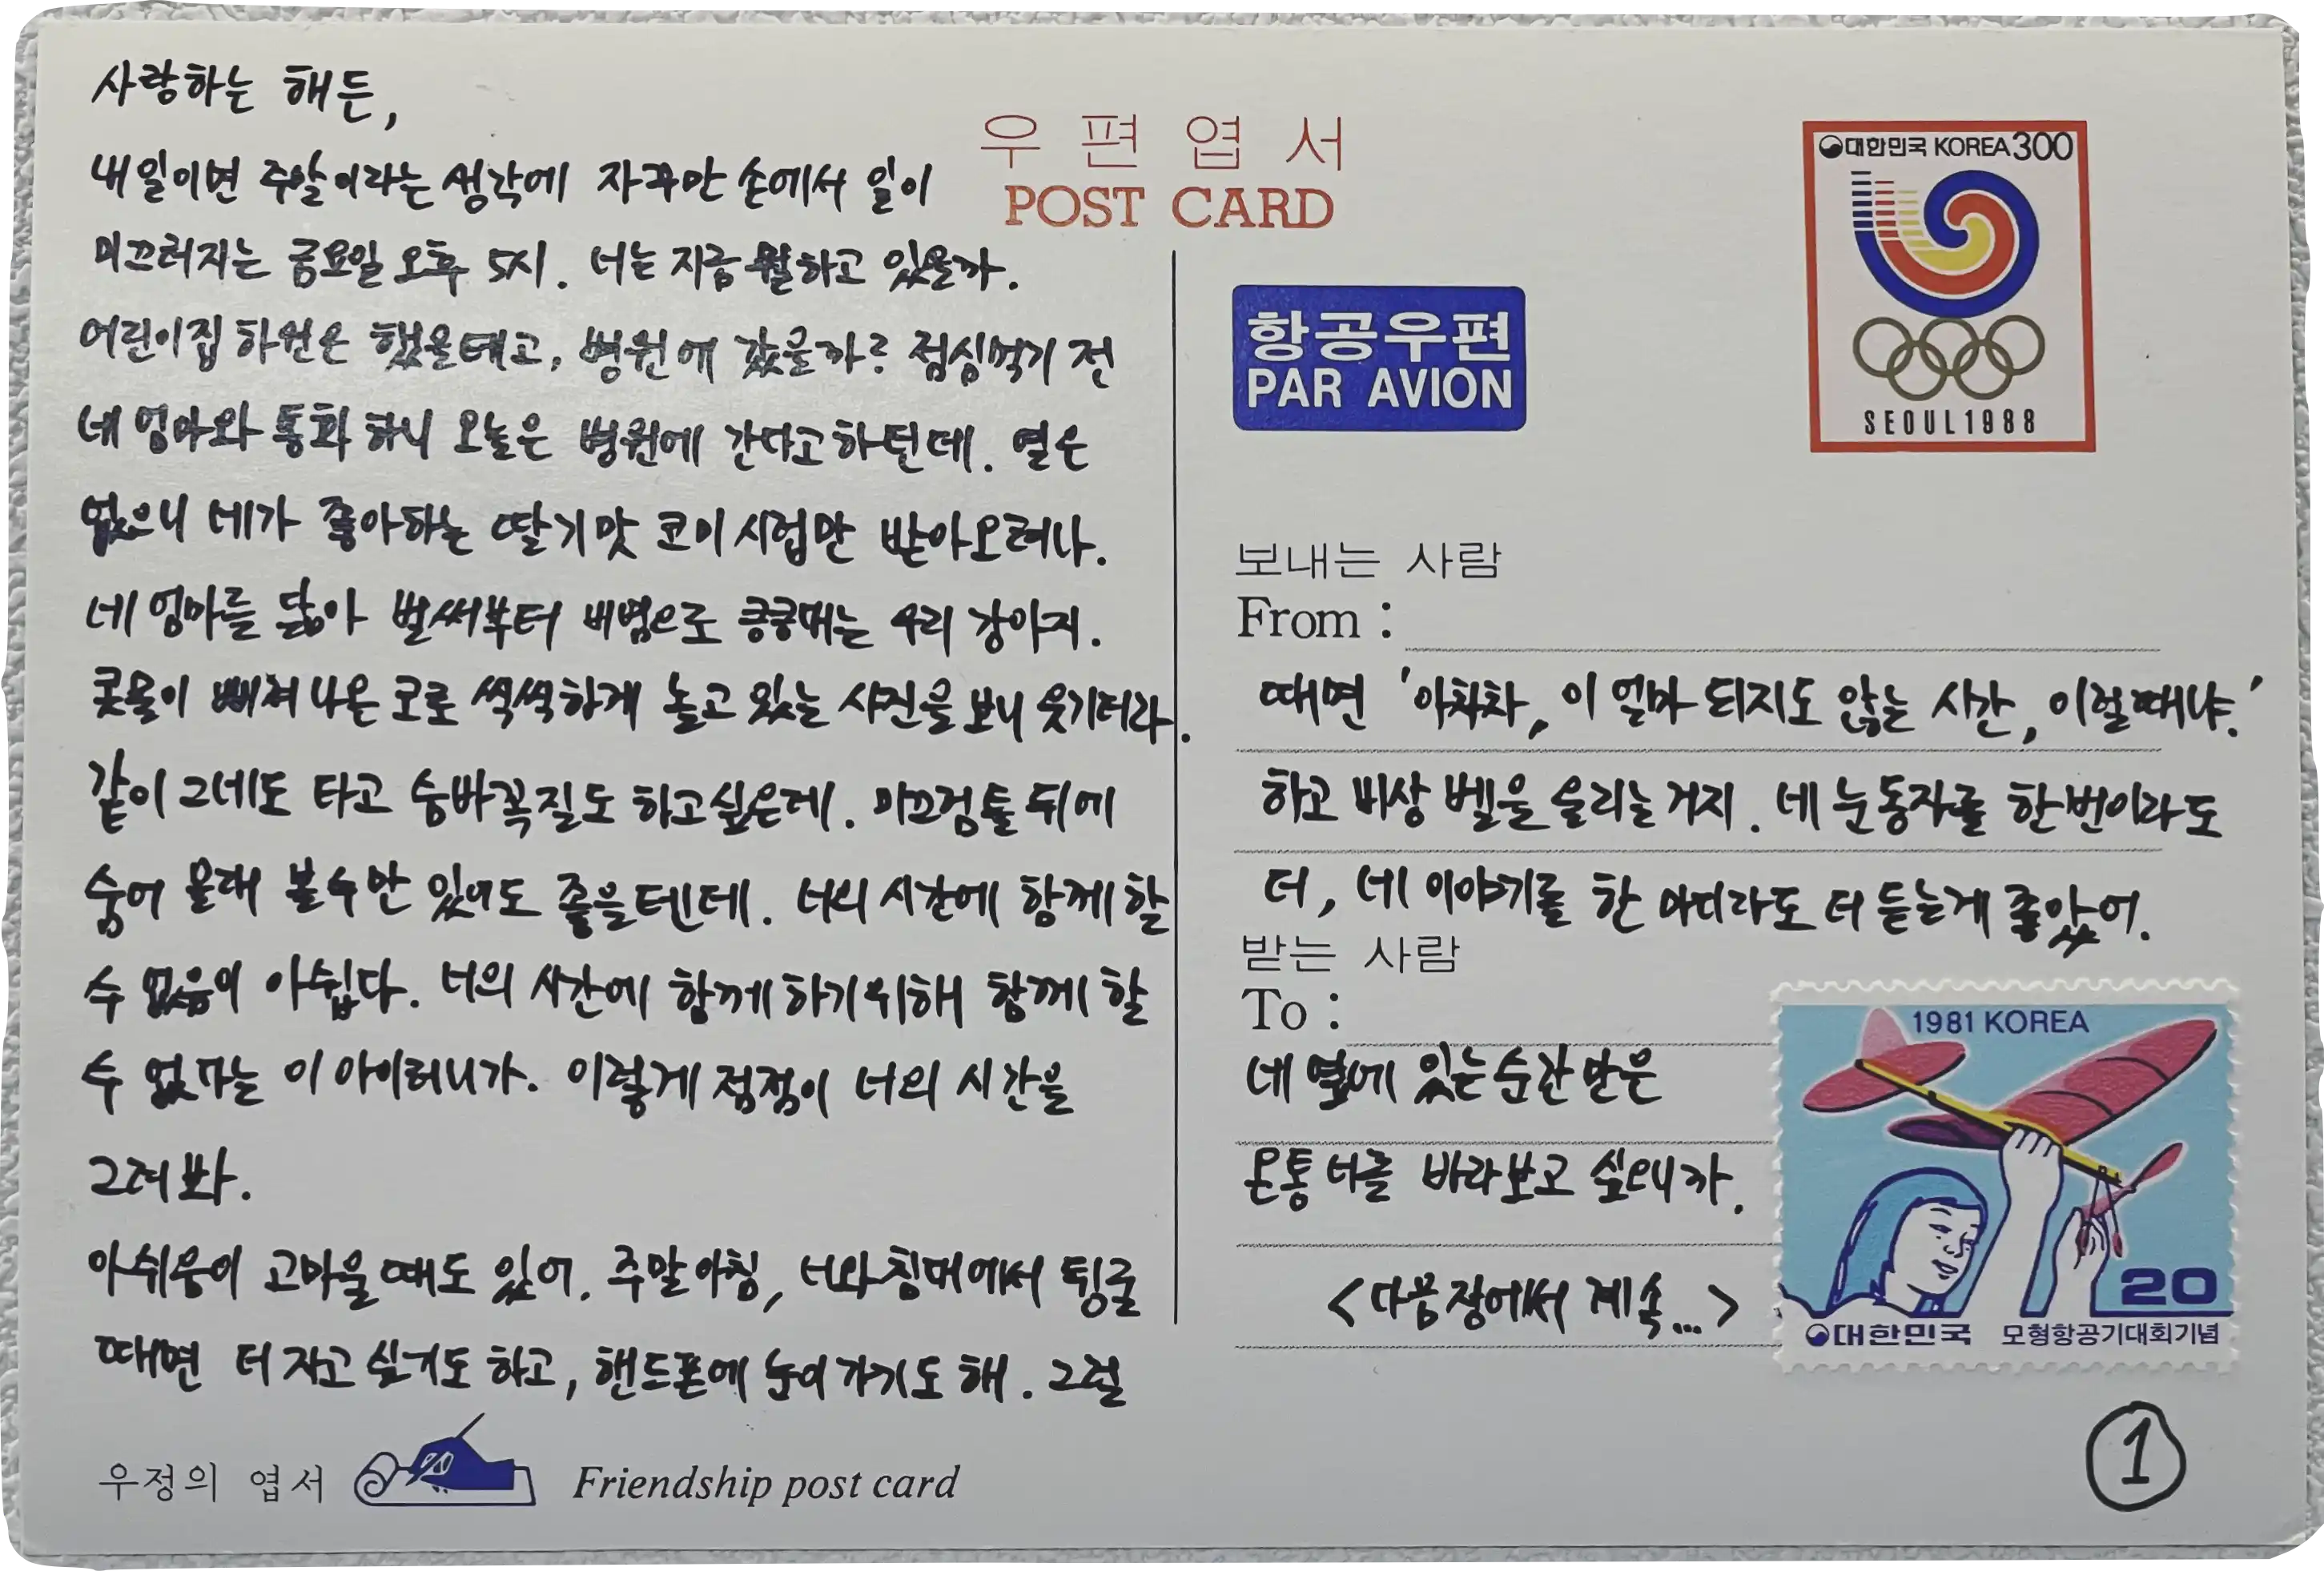 사랑하는 해든,
내일이면 주말이라는 생각에 자꾸만 손에서 일이
미끄러지는 금요일 오후 5시. 너는 지금 뭘하고 있을까.
어린이집 하원은 했을테고, 병원에 갔을까? 점심먹기 전
네 엄마와 통화 하니 오늘은 병원에 간다고하던데. 열은
없으니 네가 좋아하는 딸기맛 코미시럽만 받아오려나.
네 엄마를 닮아 벌써부터 비염으로 킁킁대는 우리 강아지.
콧물이 삐져나온 코로 씩씩하게 놀고 있는 사진을 보니 웃기더라.
같이 그네도 타고 숨바꼭질도 하고싶은데. 미끄럼틀 뒤에
숨어 몰래 볼 수만 있어도 좋을텐데. 너의 시간에 함께 할
수 없음이 아쉽다. 너의 시간에 함께 하기위해 함께 할
수 없다는 이 아이러니가. 이렇게 점점이 너의 시간을
그려 봐.
아쉬움이 고마울때도 있어. 주말아침, 너와 침대에서 뒹굴
때면 더 자고 싶기도 하고, 핸드폰에 눈이 가기도 해. 그럴
우정의 엽서 Friendship post card
우편엽서
POST CARD
대한민국 KOREA 300
SEOUL 1988
항공우편
PAR AVION
보내는 사람
From :
때면 '아차차, 이 얼마 되지도 않는 시간, 이럴때냐.'
하고 비상 벨을 울리는거지. 네 눈동자를 한번이라도
더, 네 이야기를 한 마디라도 더 듣는게 좋았어.
받는 사람
To :
네 옆에 있는 순간 만은
온통 너를 바라보고 싶으니까.
<다음 장에서 계속...>
1981 KOREA
20
대한민국 모형항공기대회기념
①